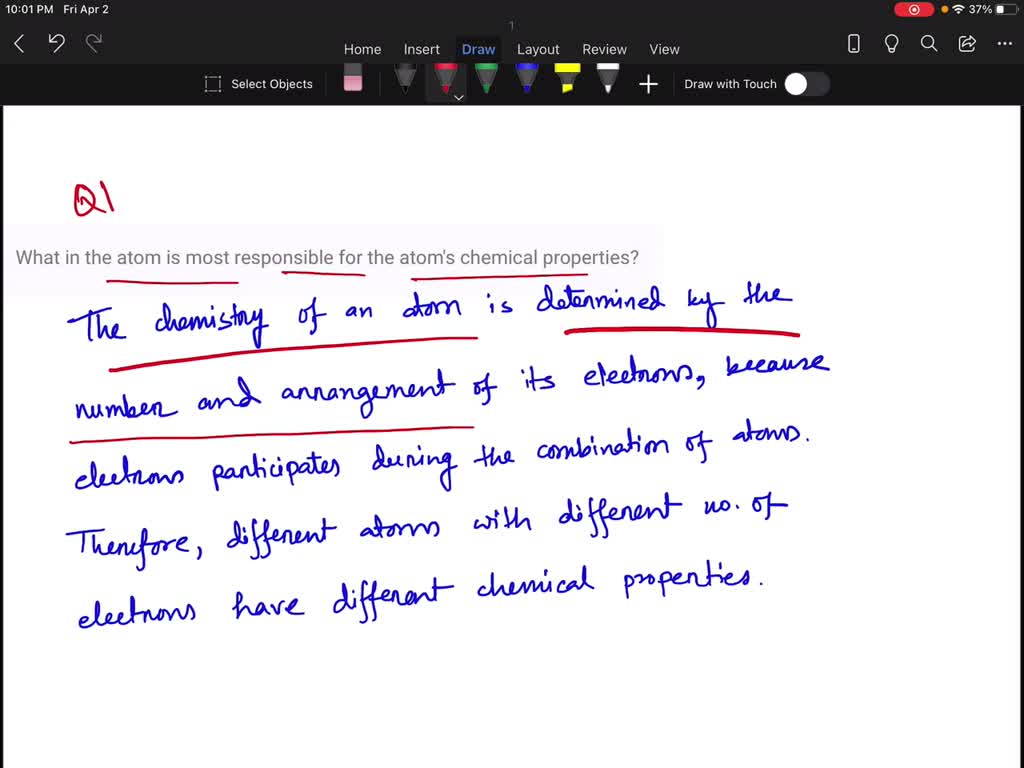 10:01 PM Fri Apr 2
37%
1
Home Insert Draw Layout Review View
Select Objects
Draw with Touch
Q1
What in the atom is most responsible for the atom's chemical properties?
The chemistry of an atom is determined by the
number and arrangement of its electrons, because
electrons participates during the combination of atoms.
Therefore, different atoms with different no. of
electrons have different chemical properties.